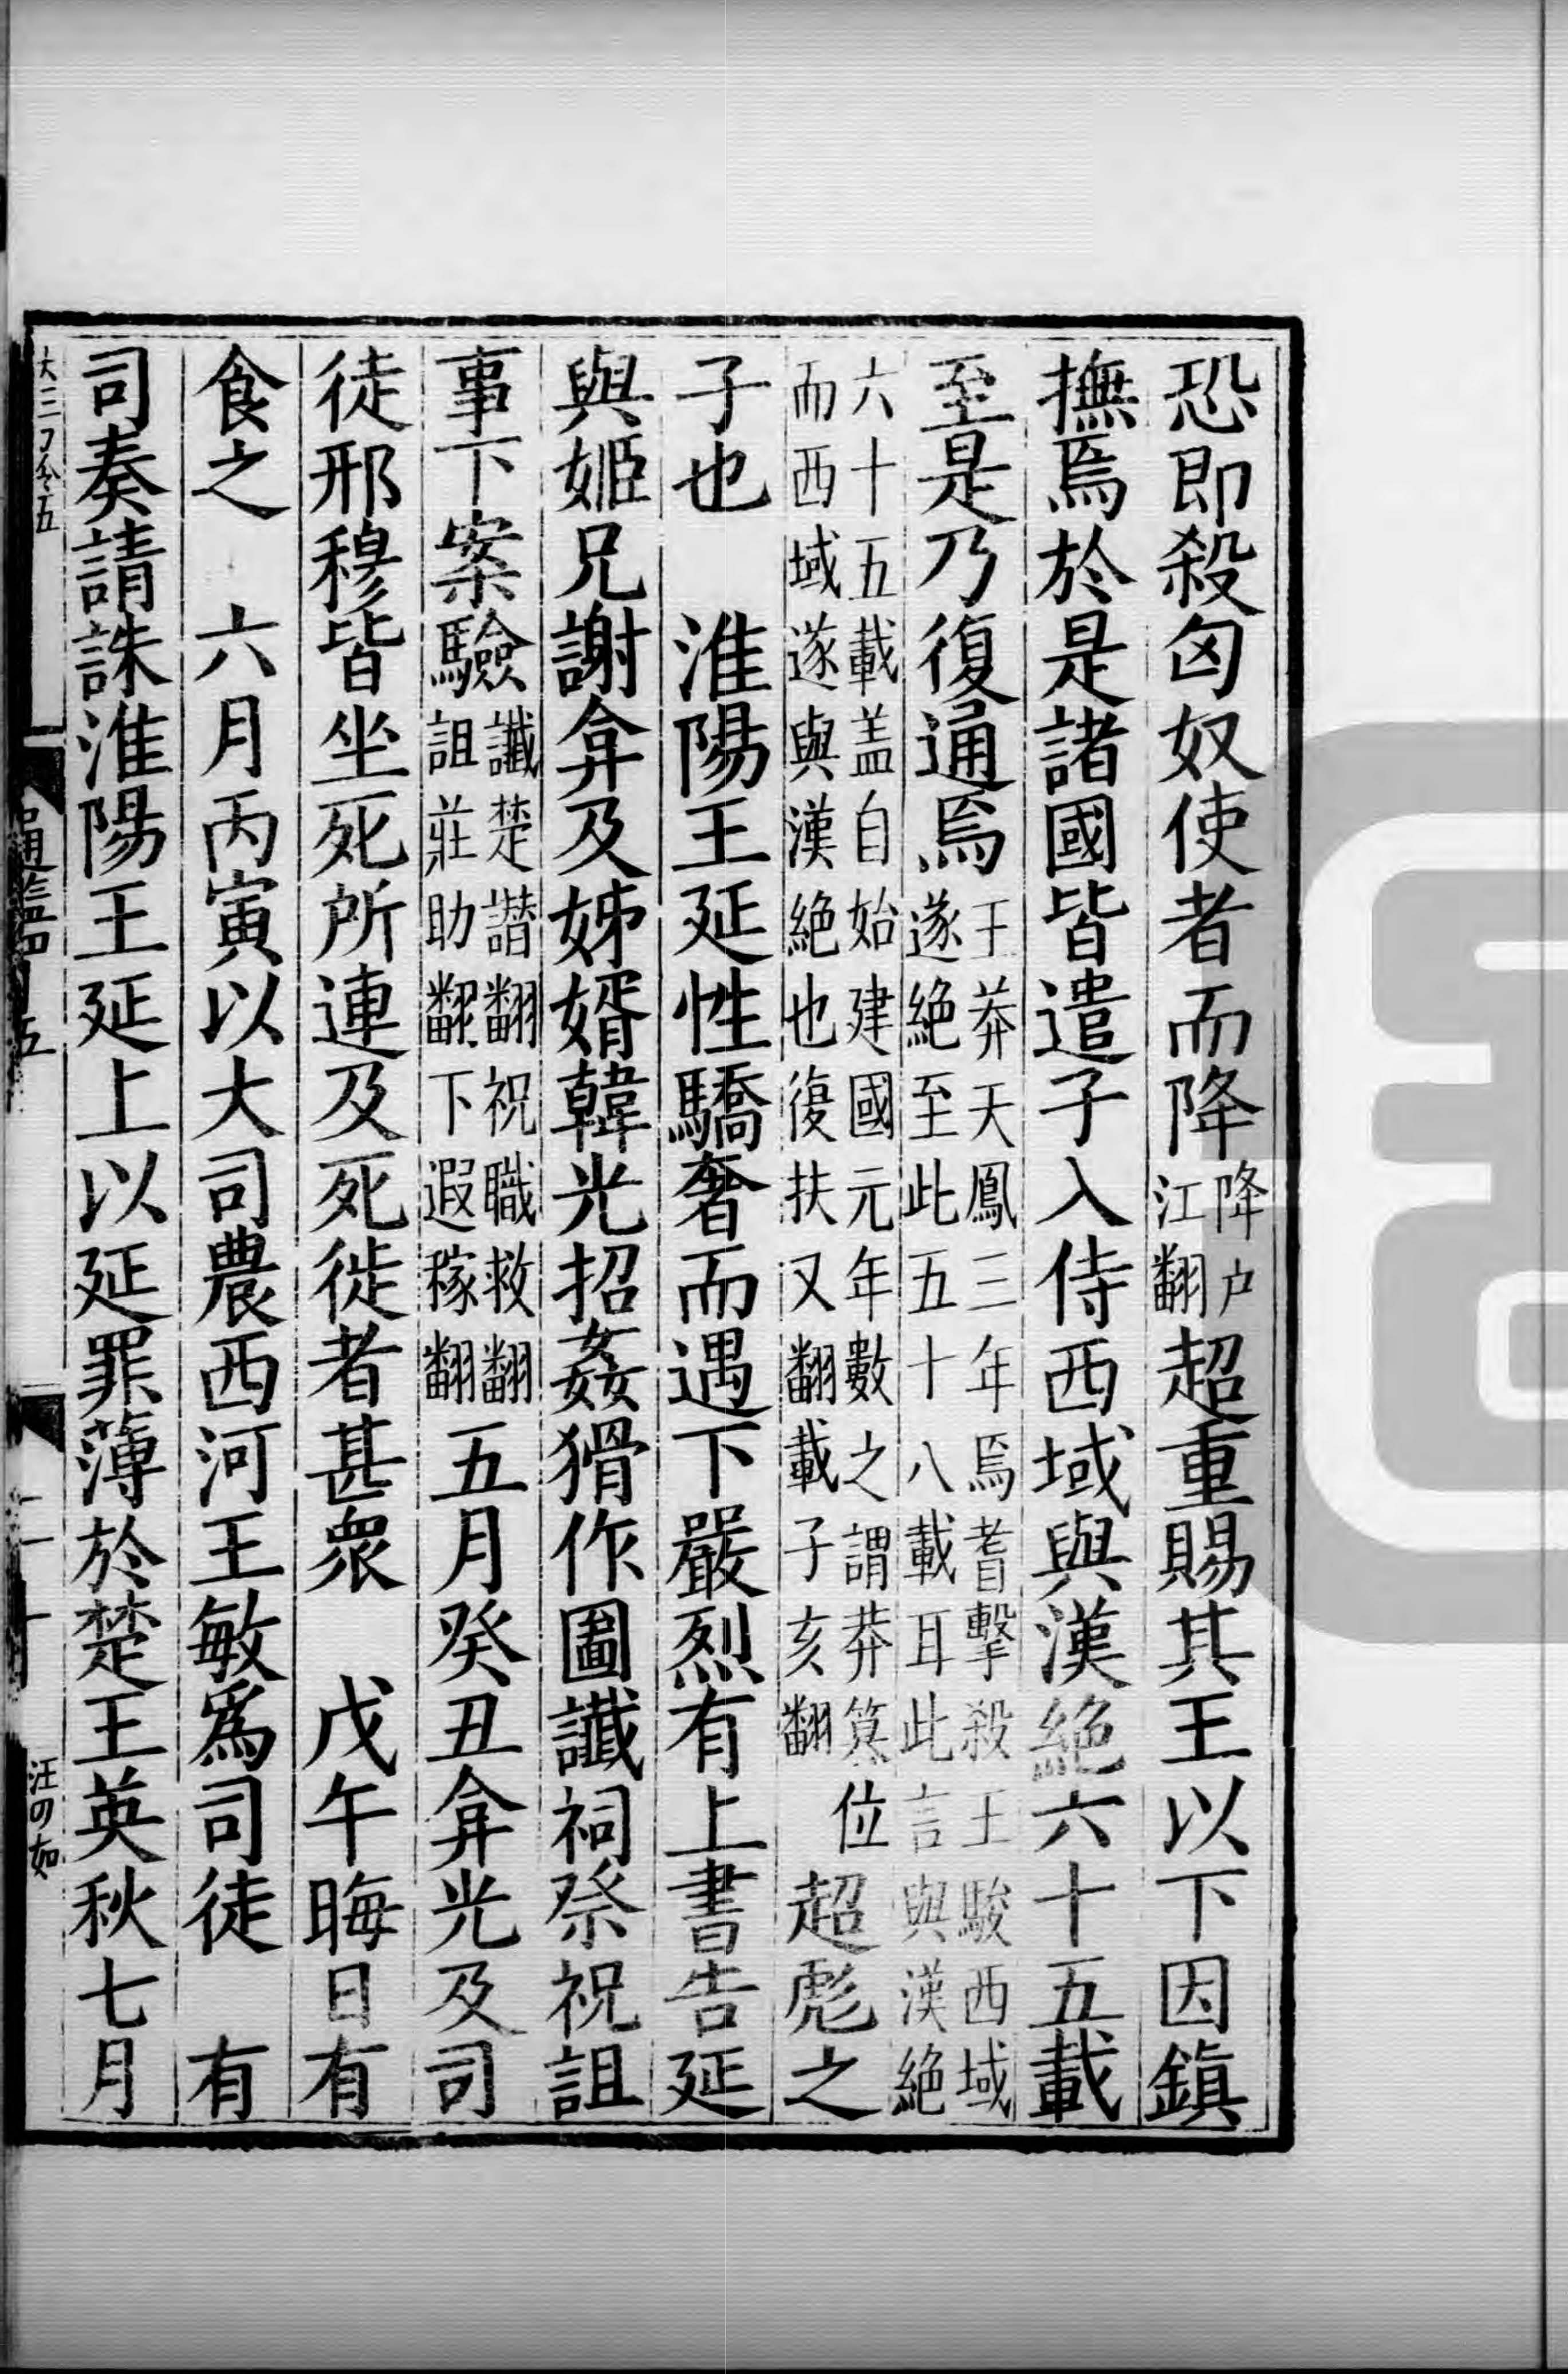 恐即殺匈奴使者而降降戶江翻超重賜其王以下因鎭
撫焉於是諸國皆遣子入侍西域與漢絶六十五載
至是乃復通焉王莽天鳳三年焉耆擊殺王駿西域遂絶至此五十八載耳此言與漢絶
六十五載盖自始建國元年數之謂莽簒位而西域遂與漢絶也復扶又翻載子亥翻超彪之
子也　淮陽王延性驕奢而遇下嚴烈有上書告延
與姬兄謝弇及姊壻韓光招姦猾作圖讖祠祭祝詛
事下案驗讖楚譖翻祝職救翻詛莊助翻下遐稼翻五月癸丑弇光及司
徒邢穆皆坐死所連及死徙者甚衆　戊午晦日有
食之　六月丙寅以大司農西河王敏爲司徒　有
司奏請誅淮陽王延上以延罪薄於楚王英秋七月
通鑑四十五